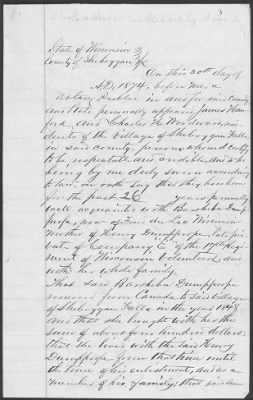 State of Wisconsin }
County of Sheboygan } ss
On this 30th day of
A.D. 1874, before me, a
Notary Public in and for said County
and State personally appears James
and Charles H. resi-
dents of the Village of Sheboygan Falls
in said county, persons whom I certify
to be respectable and credible, and who
being by me duly sworn according
to law, on oath say that they have been
for the past 26 years personally
well acquainted with Barsheba Dump-
prope, now of Fond du Lac Wisconsin
mother of Henry Dumpprope, late pri-
vate of Company "C" of the 17th Regi-
ment of Wisconsin Volunteers, and
with her whole family.
That said Barsheba Dumpprope
removed from Canada to said Village
of Sheboygan Falls in the year 1848
and that she brought with her the
sum of about four hundred dollars;
that she lived with the said Henry
Dumpprope from that time until
the time of his enlistment, and as a
member of his family; that said sum